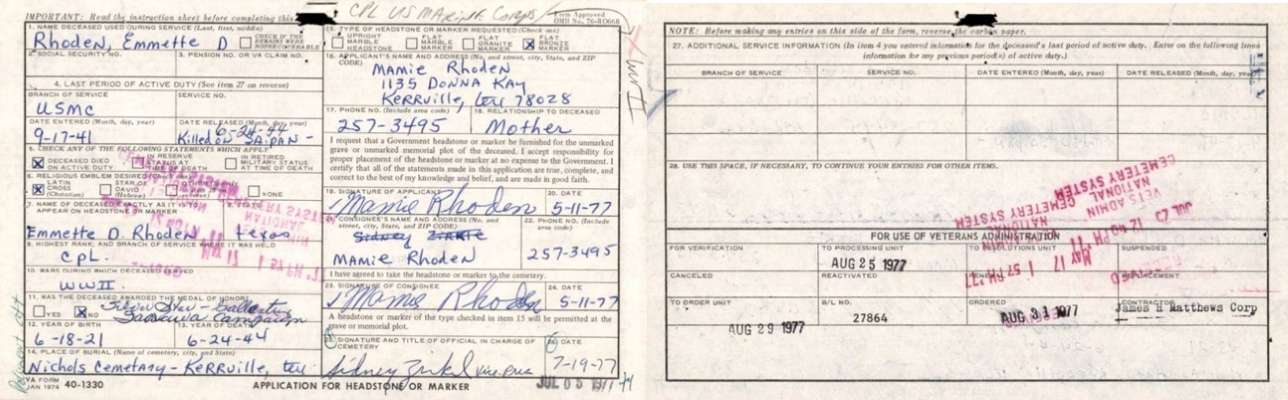 CPL US Marine Corps
IMPORTANT: Read the instruction sheet before completing this
Form Approved
OMB No. 76-R0668
1. NAME DECEASED USED DURING SERVICE (Last, first, middle)
Rhoden, Emmette D
CHECK IF THE REMAINS WERE NONRECOVERABLE
2. SOCIAL SECURITY NO.
3. PENSION NO. OR VA CLAIM NO.
4. LAST PERIOD OF ACTIVE DUTY (See item 27 on reverse)
BRANCH OF SERVICE
USMC
SERVICE NO.
DATE ENTERED (Month, day, year)
9-17-41
DATE RELEASED (Month, day, year)
6-24-44
Killed on Saipan -
5. CHECK ANY OF THE FOLLOWING STATEMENTS WHICH APPLY
DECEASED DIED ON ACTIVE DUTY
IN RESERVE STATUS AT TIME OF DEATH
IN RETIRED MILITARY STATUS AT TIME OF DEATH
6. RELIGIOUS EMBLEM DESIRED
LATIN CROSS (Christian)
STAR OF DAVID (Hebrew)
NONE
7. NAME OF DECEASED EXACTLY AS IT IS TO APPEAR ON HEADSTONE OR MARKER
Emmette D. Rhoden
Texas
9. HIGHEST RANK, AND BRANCH OF SERVICE WHERE IT WAS HELD
CPL.
10. WARS DURING WHICH DECEASED SERVED
WWII
11. WAS THE DECEASED AWARDED THE MEDAL OF HONOR?
YES
NO
Silver Star - Gallantry
Tarawa Campaign
12. YEAR OF BIRTH
6-18-21
13. YEAR OF DEATH
6-24-44
14. PLACE OF BURIAL (Name of cemetery, city, and State)
Nichols Cemetary - Kerrville, tex
VA FORM
JAN 1974
40-1330
APPLICATION FOR HEADSTONE OR MARKER
15. TYPE OF HEADSTONE OR MARKER REQUESTED (Check one)
UPRIGHT MARBLE HEADSTONE
FLAT MARBLE MARKER
FLAT GRANITE MARKER
FLAT BRONZE MARKER
WWII
16. APPLICANT'S NAME AND ADDRESS (No. and street, city, State, and ZIP CODE)
Mamie Rhoden
1135 Donna Kay
Kerrville, tex 78028
17. PHONE NO. (Include area code)
257-3495
18. RELATIONSHIP TO DECEASED
Mother
I request that a Government headstone or marker be furnished for the unmarked
grave or unmarked memorial plot of the deceased. I accept responsibility for
proper placement of the headstone or marker at no expense to the Government. I
certify that all of the statements made in this application are true, complete, and
correct to the best of my knowledge and belief, and are made in good faith.
19. SIGNATURE OF APPLICANT
Mamie Rhoden
20. DATE
5-11-77
21. CONSIGNEE'S NAME AND ADDRESS (No. and street, city, State, and ZIP CODE)
Sidney
Mamie Rhoden
22. PHONE NO. (Include area code)
257-3495
I have agreed to take the headstone or marker to the cemetery.
23. SIGNATURE OF CONSIGNEE
Mamie Rhoden
24. DATE
5-11-77
A headstone or marker of the type checked in item 15 will be permitted at the
grave or memorial plot.
25. SIGNATURE AND TITLE OF OFFICIAL IN CHARGE OF CEMETERY
Sidney Zirkel Vice Pres
26. DATE
7-19-77
JUL 05 1977
NOTE: Before making any entries on this side of the form, reverse the carbon paper.
27. ADDITIONAL SERVICE INFORMATION (In item 4 you entered information for the deceased's last period of active duty. Enter on the following lines
information for any previous period(s) of active duty.)
BRANCH OF SERVICE
SERVICE NO.
DATE ENTERED (Month, day, year)
DATE RELEASED (Month, day, year)
28. USE THIS SPACE, IF NECESSARY, TO CONTINUE YOUR ENTRIES FOR OTHER ITEMS.
VETS ADMIN
NATIONAL
CEMETERY SYSTEM
MAY 17 1 57 PM '77
FOR USE OF VETERANS ADMINISTRATION
FOR VERIFICATION
TO PROCESSING UNIT
AUG 25 1977
SUSPENDED
CANCELED
REACTIVATED
TO ORDER UNIT
AUG 29 1977
B/L NO.
27864
ORDERED
AUG 31 1977
CONTRACTOR
James H Matthews Corp